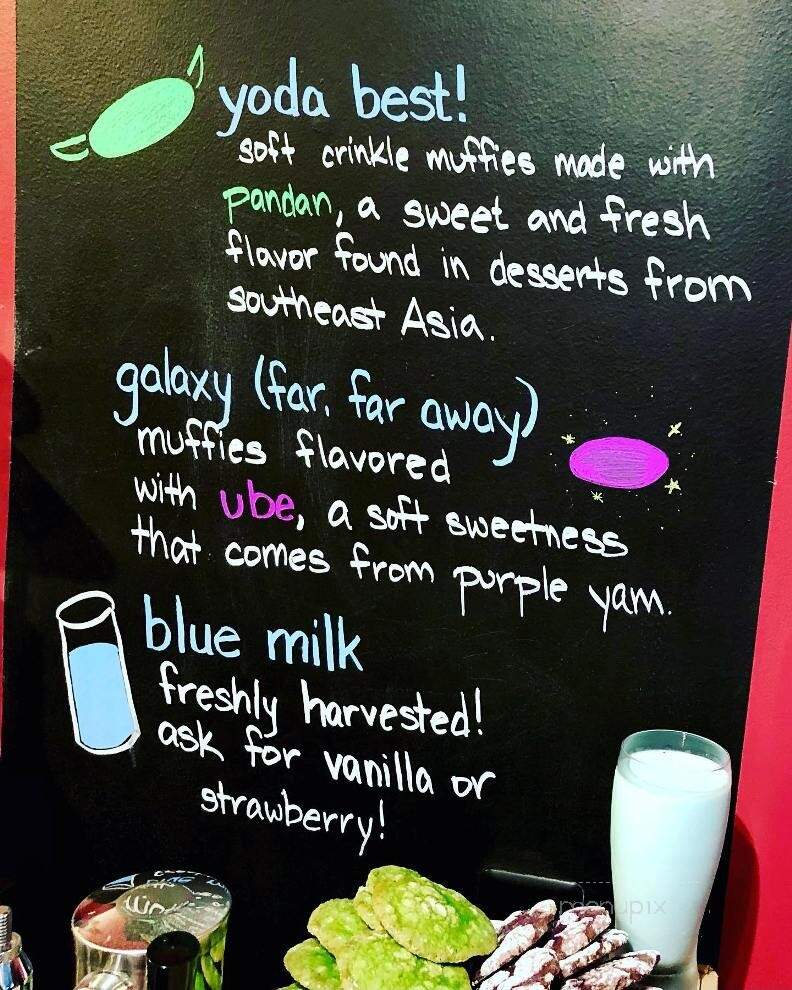 yoda best!
soft crinkle muffies made with
pandan, a sweet and fresh
flavor found in desserts from
southeast Asia.
galaxy (far, far away)
muffies flavored
with ube, a soft sweetness
that comes from purple yam.
blue milk
freshly harvested!
ask for vanilla or
strawberry!
menupix